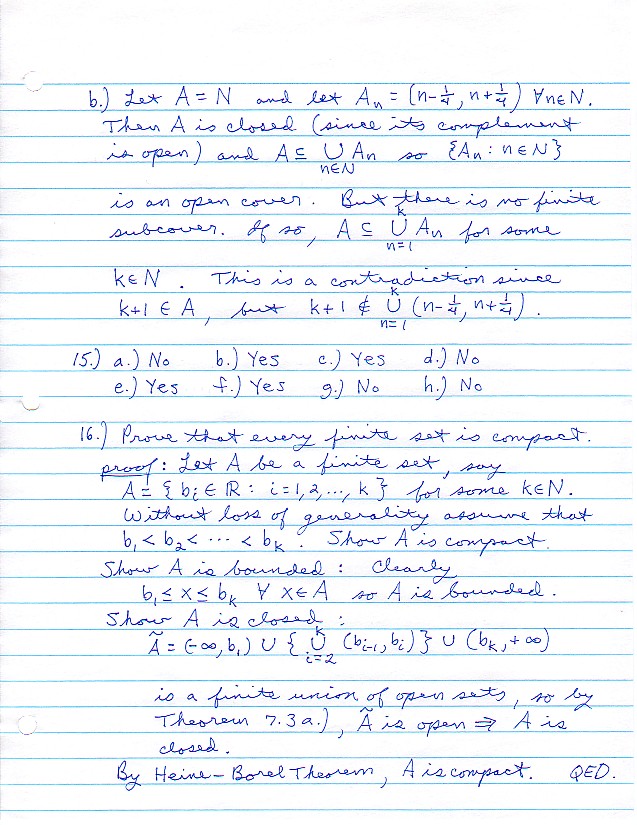 b.) Let A = N and let Aₙ = (n-¼, n+¼) ∀n∈N.
Then A is closed (since its complement
is open) and A ⊆ ∪ Aₙ so {Aₙ : n∈N}
n∈N
is an open cover. But there is no finite
subcover. If so, A ⊆ ᵏ∪ₙ₌₁ Aₙ for some
k∈N. This is a contradiction since
k+1 ∈ A, but k+1 ∉ ᵏ∪ₙ₌₁ (n-¼, n+¼).
15.) a.) No b.) Yes c.) Yes d.) No
e.) Yes f.) Yes g.) No h.) No
16.) Prove that every finite set is compact.
proof: Let A be a finite set, say
A = { bᵢ ∈ ℝ : i=1,2,..., k } for some k∈N.
Without loss of generality assume that
b₁ < b₂ < ··· < bₖ. Show A is compact.
Show A is bounded: Clearly
b₁ ≤ x ≤ bₖ ∀ x∈A so A is bounded.
Show A is closed:
Ã = (-∞, b₁) ∪ { ᵏ∪ᵢ₌₂ (bᵢ₋₁, bᵢ)} ∪ (bₖ, +∞)
is a finite union of open sets, so by
Theorem 7.3 a.), Ã is open ⇒ A is
closed.
By Heine-Borel Theorem, A is compact. QED.